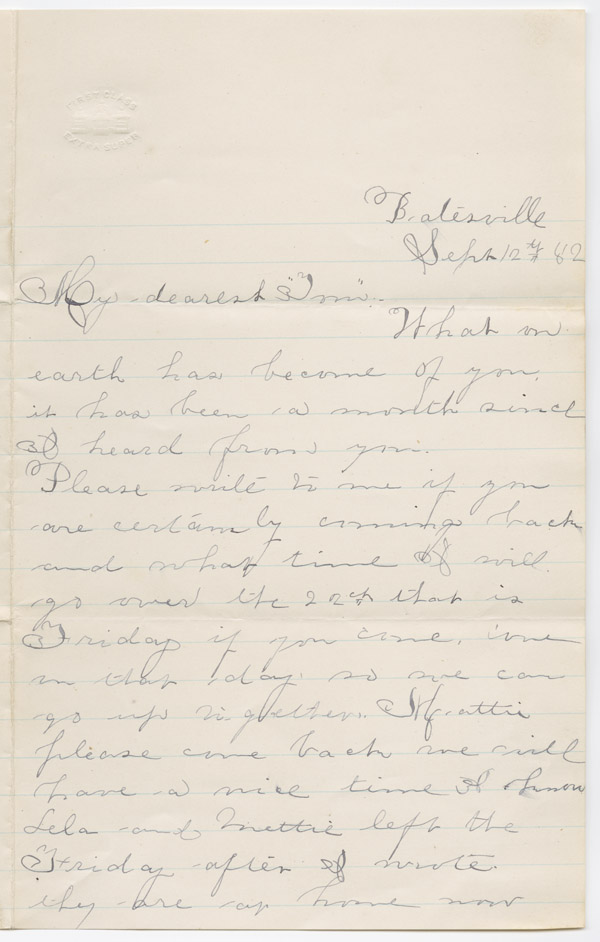 FIRST CLASS
EXTRA SUPER
Batesville
Sept 12th 82
My dearest "Jm".
What on
earth has become of you.
it has been a month since
I heard from you.
Please write to me if you
are certainly coming back
and what time I will
go over the 22nd that is
Friday if you come, come
on that day so we can
go up together. Mattie
please come back we will
have a nice time I know
Lela and Mettie left the
Friday after I wrote.
they are at home now